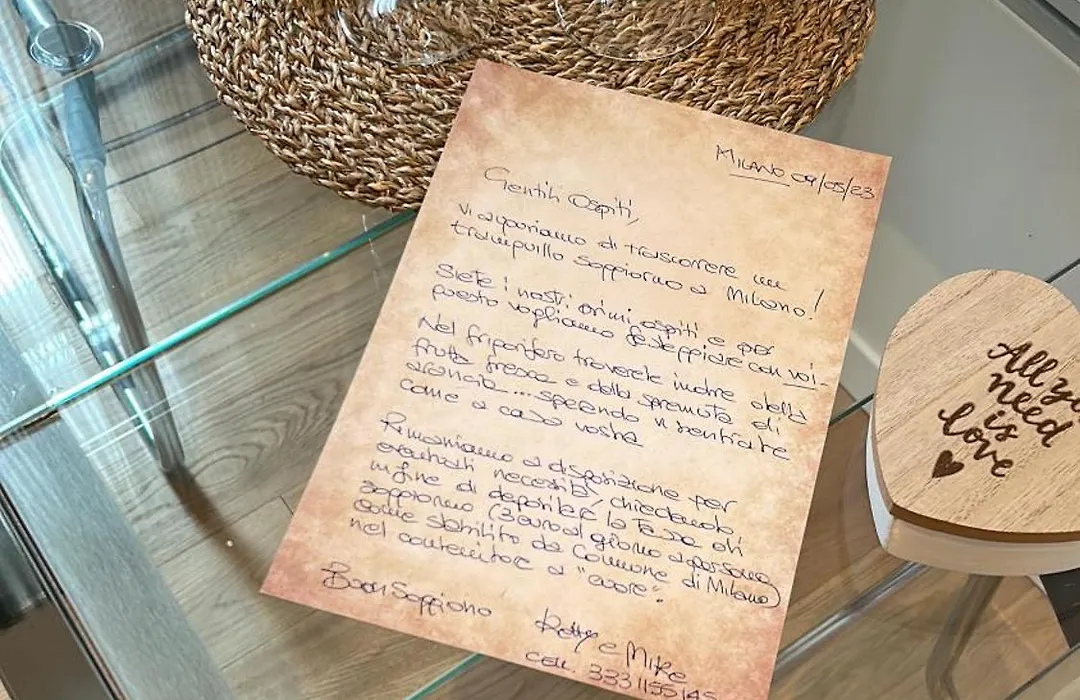 MILANO 09/05/23
Gentili Ospiti,
Vi auguriamo di trascorrere un
tranquillo soggiorno a Milano!
Siete i nostri primi ospiti e per
questo vogliamo festeggiare con voi-
Nel frigorifero troverete inoltre della
frutta fresca e della spremuta di
arancia... sperando vi sentiate
come a casa vostra
Rimaniamo a disposizione per
eventuali necessità, chiedendovi
infine di depositare la Tassa di
soggiorno (3 euro al giorno a persona
come stabilito da Comune di Milano)
nel contenitore a "cuore".
Buon Soggiorno
Ketty e Mike
CELL. 333 1155145
All yo
need
is
love